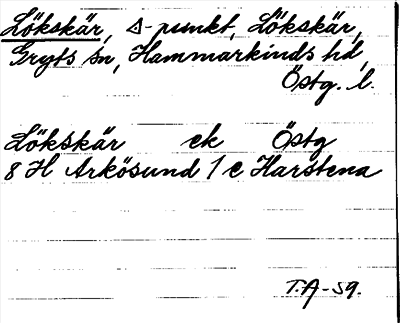 Lökskär, △-punkt, Lökskär,
Gryts sn, Hammarkinds hd,
Östg. l.
Lökskär ek Östg
8 H Arkösund 1 c Harstena
T.A-59.